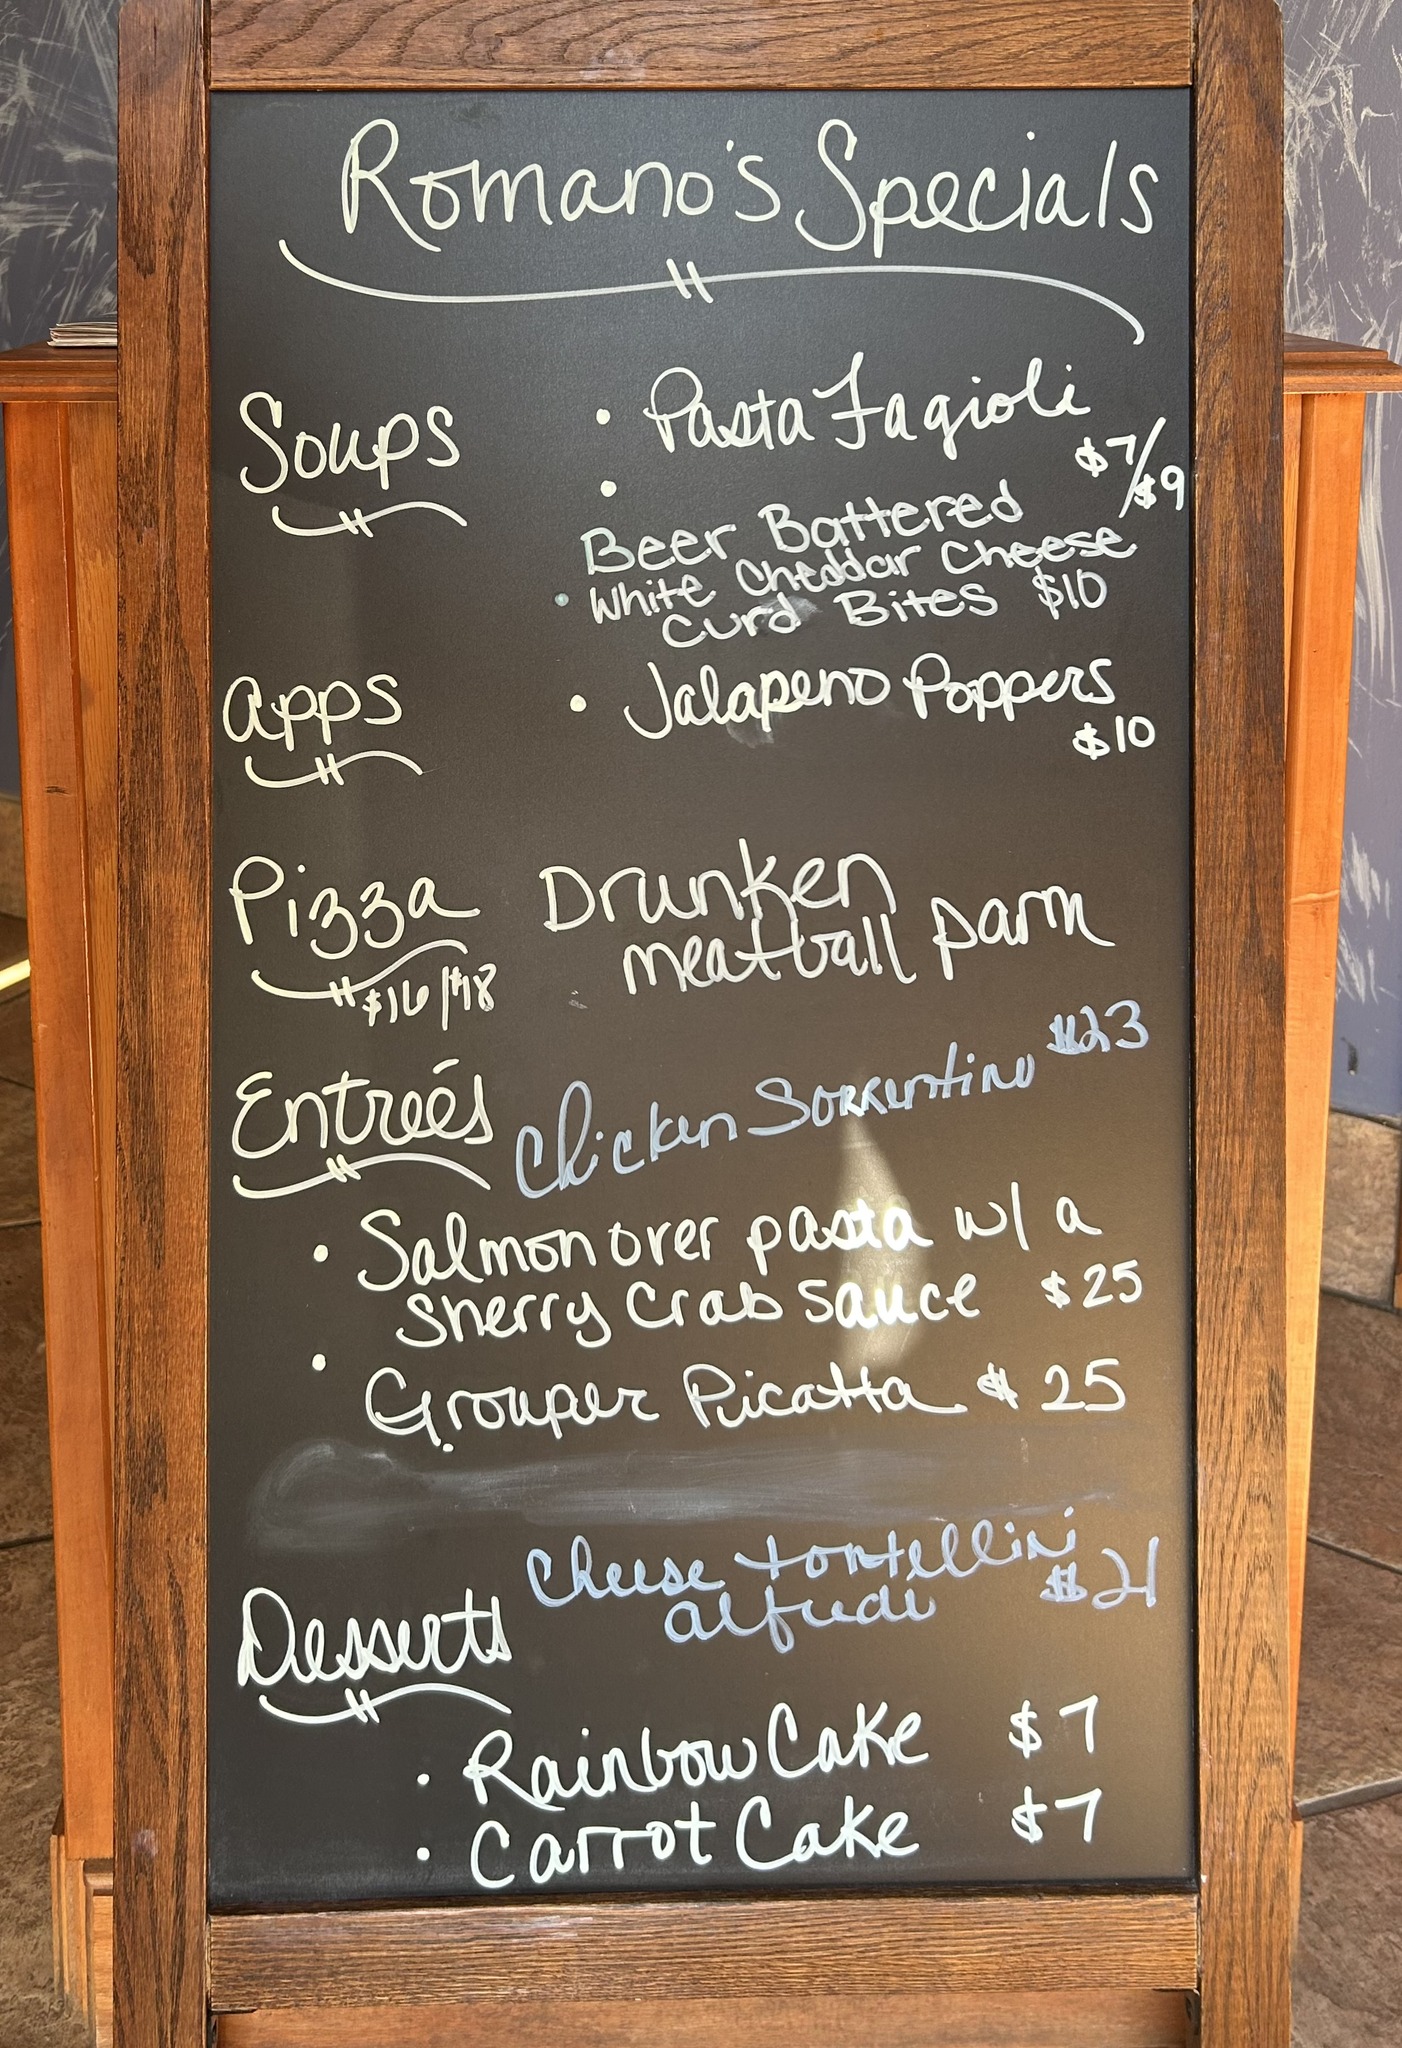 Romano's Specials
Soups
• Pasta Fagioli
•
$7/$9
Beer Battered
• White Cheddar Cheese
Curd Bites $10
Apps
• Jalapeno Poppers
$10
Pizza
$16/$18
Drunken
meatball parm
Entreés
Chicken Sorrentino $23
• Salmon over pasta w/ a
Sherry Crab Sauce $25
• Grouper Picatta $25
Cheese tortellini
alfredo $21
Desserts
• Rainbow Cake $7
• Carrot Cake $7